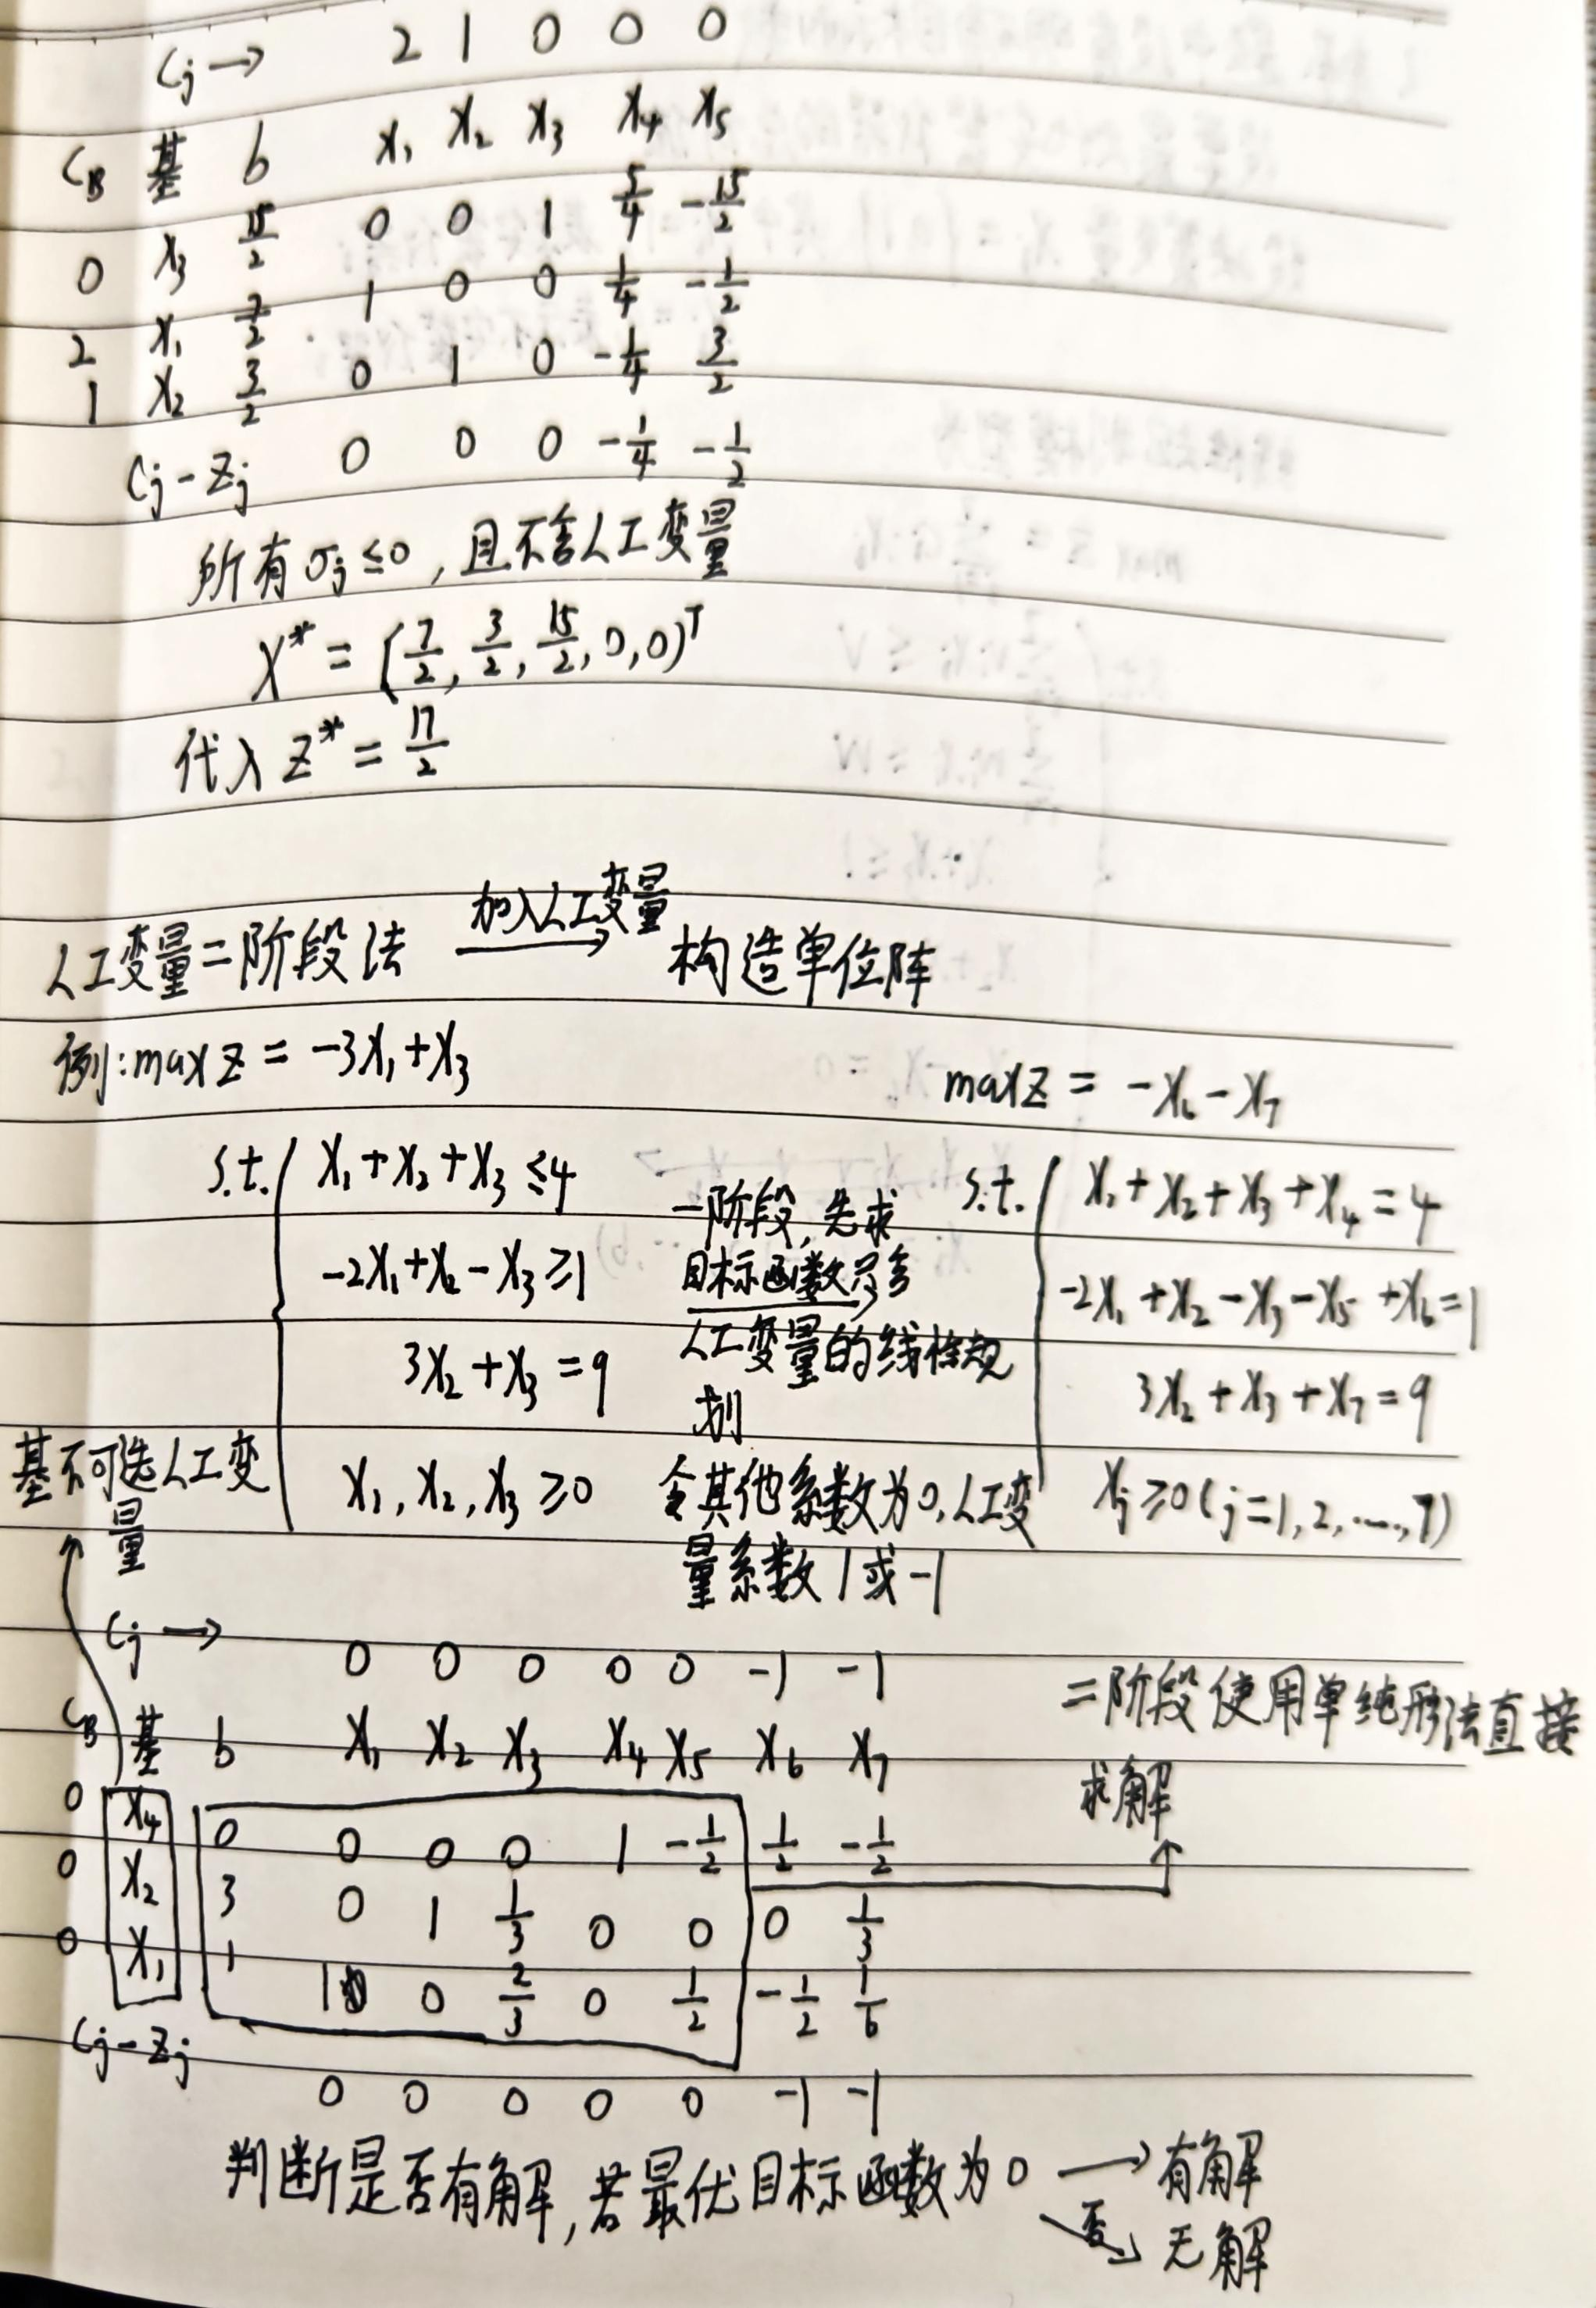 Cj → 2 1 0 0 0
CB 基 b x₁ x₂ x₃ x₄ x₅
0 x₃ 15/2 0 0 1 5/4 -15/2
2 x₁ 7/2 1 0 0 1/4 -1/2
1 x₂ 3/2 0 1 0 -1/4 3/2
Cj-Zj 0 0 0 -1/4 -1/2
所有σj≤0,且不含人工变量
X* = (7/2, 3/2, 15/2, 0, 0)ᵀ
代入 Z* = 17/2
人工变量二阶段法 加入人工变量→ 构造单位阵
例:max Z = -3x₁+x₃
s.t. { x₁+x₂+x₃≤4
-2x₁+x₂-x₃≥1
3x₂+x₃=9
x₁, x₂, x₃≥0
一阶段,先求
目标函数只含
人工变量的线性规
划
令其他系数为0,人工变
量系数1或-1
max Z = -x₆-x₇
s.t. { x₁+x₂+x₃+x₄=4
-2x₁+x₂-x₃-x₅+x₆=1
3x₂+x₃+x₇=9
xj≥0(j=1,2,...,7)
基不可选人工变
量
Cj → 0 0 0 0 0 -1 -1
CB 基 b x₁ x₂ x₃ x₄ x₅ x₆ x₇
0 x₄ 0 0 0 0 1 -1/2 1/2 -1/2
0 x₂ 3 0 1 1/3 0 0 0 1/3
0 x₁ 1 1 0 2/3 0 1/2 -1/2 1/6
Cj-Zj 0 0 0 0 0 -1 -1
二阶段使用单纯形法直接
求解
判断是否有解,若最优目标函数为0 → 有解
否→ 无解